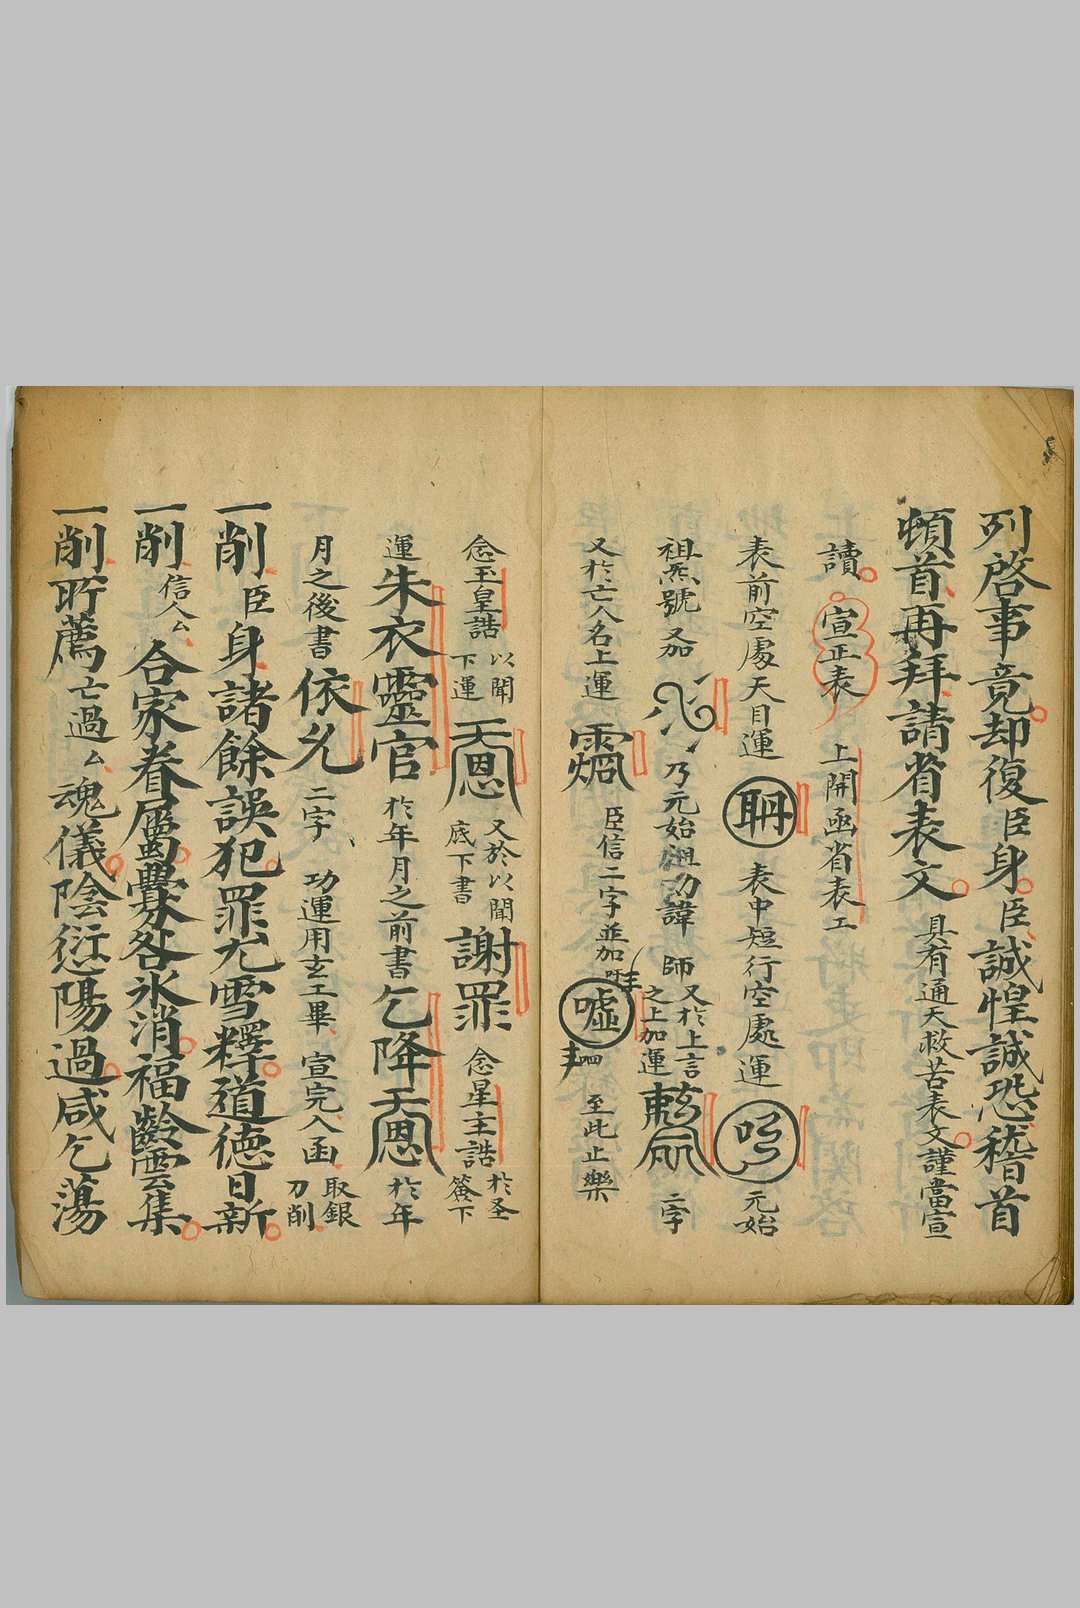 列啓事竟却復臣身臣誠惶誠恐稽首
頓首再拜請省表文 具有通天救苦表文謹當宣
讀 宣正表 上開函省表工
表前空處天目運 表中短行空處運 元始
祖炁號又加 乃元始祖劝諱 師又於上言之上加運 二字
又於亡人名上運 臣信二字並加 噓 至此止樂
念玉皇誥 以聞下運 天恩 又於以聞底下書 謝罪 念星主誥 於圣篆下
運朱衣靈官 於年月之前書 乞降天恩 於年
月之後書 依允 二字 功運用玄工畢 宣完入函 取銀刀削
一削臣身諸餘誤犯罪尤雪釋道德日新
一削信人厶合家眷屬釁咎氷消福齡雲集
一削所薦亡過厶魂儀陰愆陽過咸乞蕩